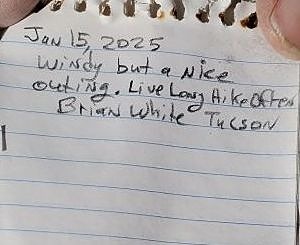 Jan 15, 2025
Windy but a Nice
outing. Live Long Hike Often
Brian White Tucson